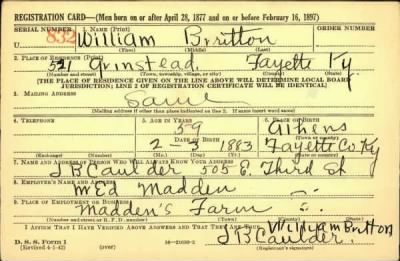 REGISTRATION CARD—(Men born on or after April 28, 1877 and on or before February 16, 1897)
SERIAL NUMBER 1. NAME (Print) ORDER NUMBER
U 832 William Britton
(First) (Middle) (Last)
2. PLACE OF RESIDENCE (Print)
521 Grinstead. Fayette Ky
(Number and street) (Town, township, village, or city) (County) (State)
[THE PLACE OF RESIDENCE GIVEN ON THE LINE ABOVE WILL DETERMINE LOCAL BOARD
JURISDICTION; LINE 2 OF REGISTRATION CERTIFICATE WILL BE IDENTICAL]
3. MAILING ADDRESS
Same
[Mailing address if other than place indicated on line 2. If same insert word same]
4. TELEPHONE 5. AGE IN YEARS 6. PLACE OF BIRTH
59 Athens
DATE OF BIRTH (Town or county)
2-3 1883 Fayette Co Ky
(Exchange) (Number) (Mo.) (Day) (Yr.) (State or country)
7. NAME AND ADDRESS OF PERSON WHO WILL ALWAYS KNOW YOUR ADDRESS
J B Caulder 505 E. Third St
8. EMPLOYER'S NAME AND ADDRESS
M Ed Madden
9. PLACE OF EMPLOYMENT OR BUSINESS
Madden's Farm
(Number and street or R. F. D. number) (Town) (County) (State)
I AFFIRM THAT I HAVE VERIFIED ABOVE ANSWERS AND THAT THEY ARE TRUE.
William Britton
J B Caulder.
D. S. S. Form 1
(Revised 4-1-42) (over)